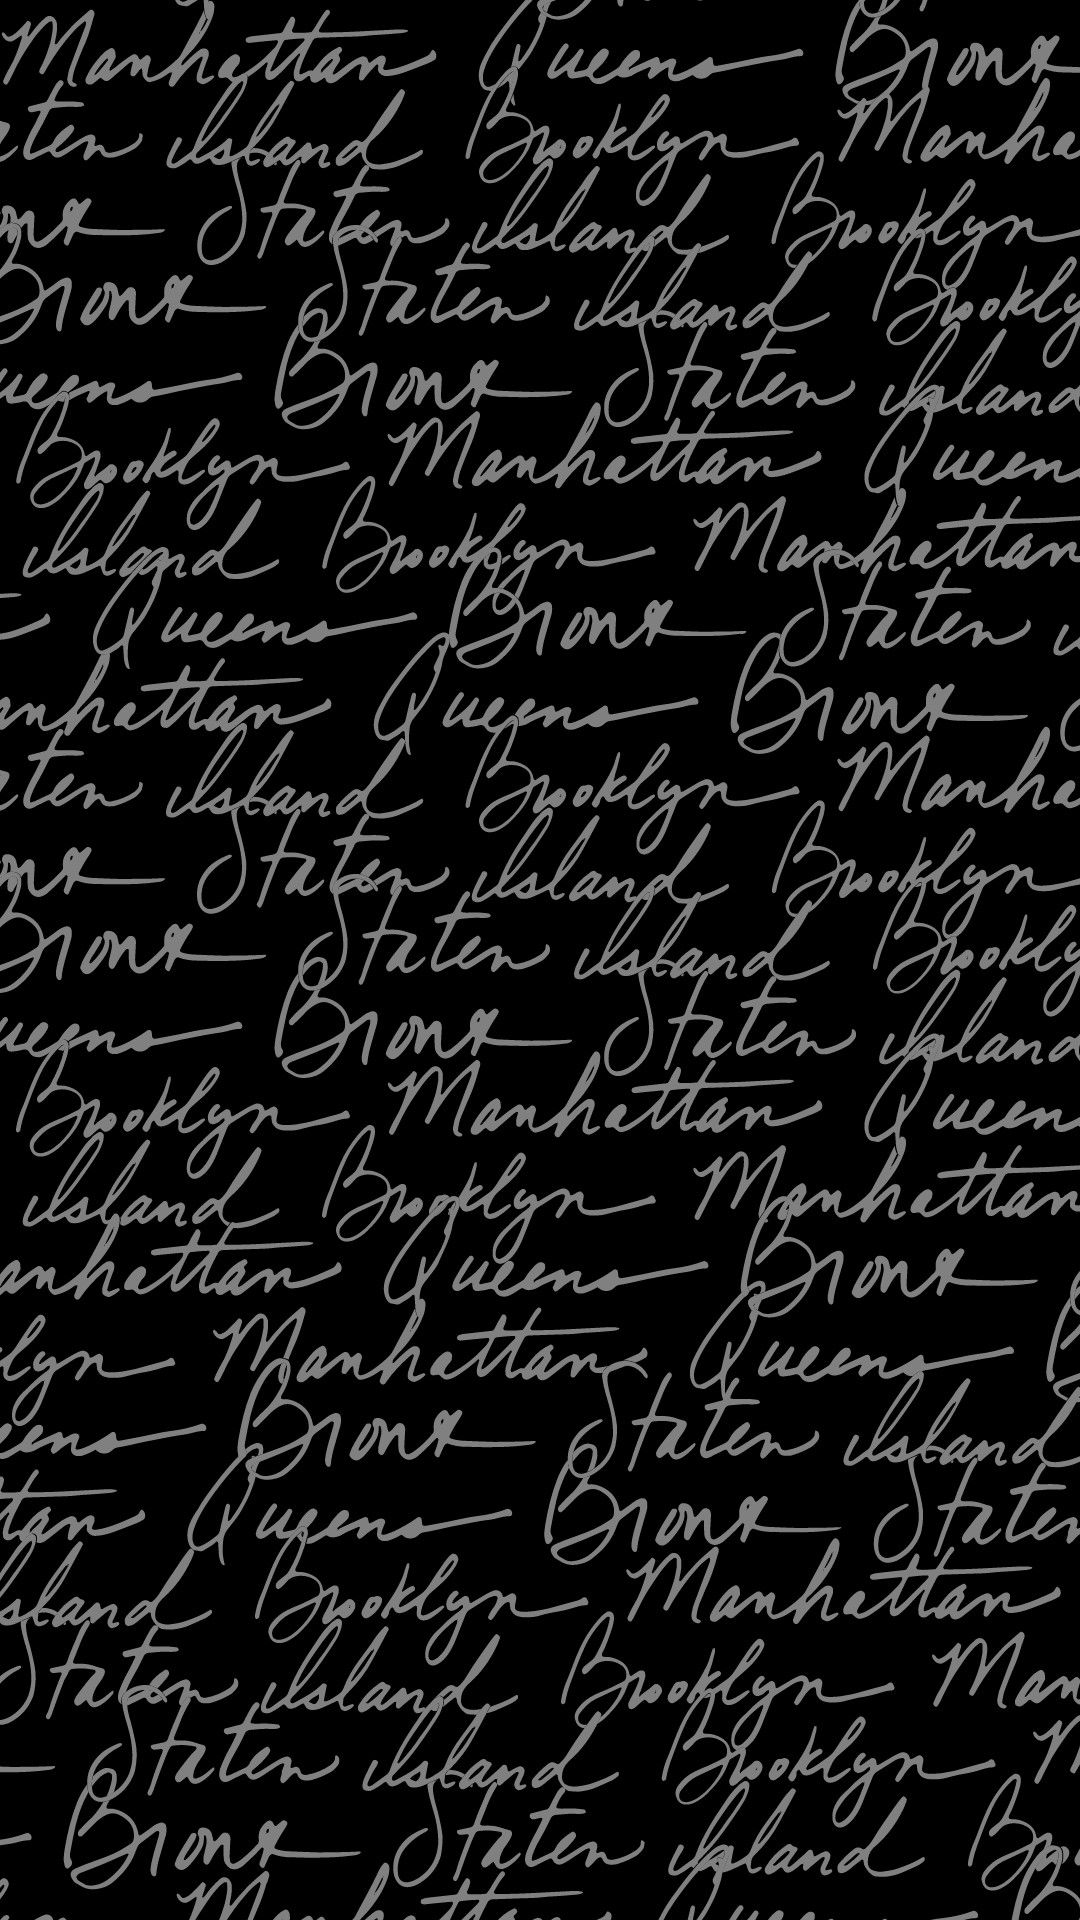 Manhattan Queens Bronx
aten island Brooklyn Manha
onx Staten island Brooklyn
Bronx Staten island Brookly
ueens Bronx Staten island
Brooklyn Manhattan Queen
island Brooklyn Manhattan
Queens Bronx Staten
anhattan Queens Bronx
aten island Brooklyn Manha
onx Staten island Brooklyn
Bronx Staten island Brookly
ueens Bronx Staten island
Brooklyn Manhattan Queen
island Brooklyn Manhattan
anhattan Queens Bronx
klyn Manhattan Queens B
eens Bronx Staten island
tan Queens Bronx Staten
sland Brooklyn Manhattan
Staten island Brooklyn Man
Staten island Brooklyn M
Bronx Staten island Bro
Manhattan Queens